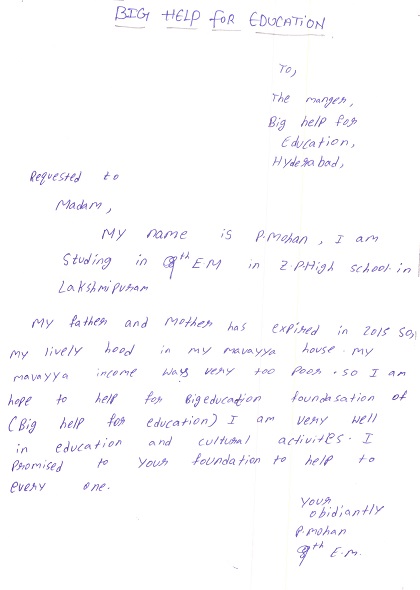 BIG HELP FOR EDUCATION
To,
The manger,
Big help for
Education,
Hyderabad,
Requested to
Madam,
My name is P.Mohan, I am
Studing in 9th E.M in Z.P.High school.in
Lakshmipuram
My father and Mother has expired in 2015 So,
my lively hood in my mavayya house. my
mavayya income way very too poor. so I am
hope to help for Bigeducation foundasation of
(Big help for education) I am very well
in education and cultural activites. I
Promised to your foundation to help to
every one.
Your
obidiantly
P.mohan
9th E.M.